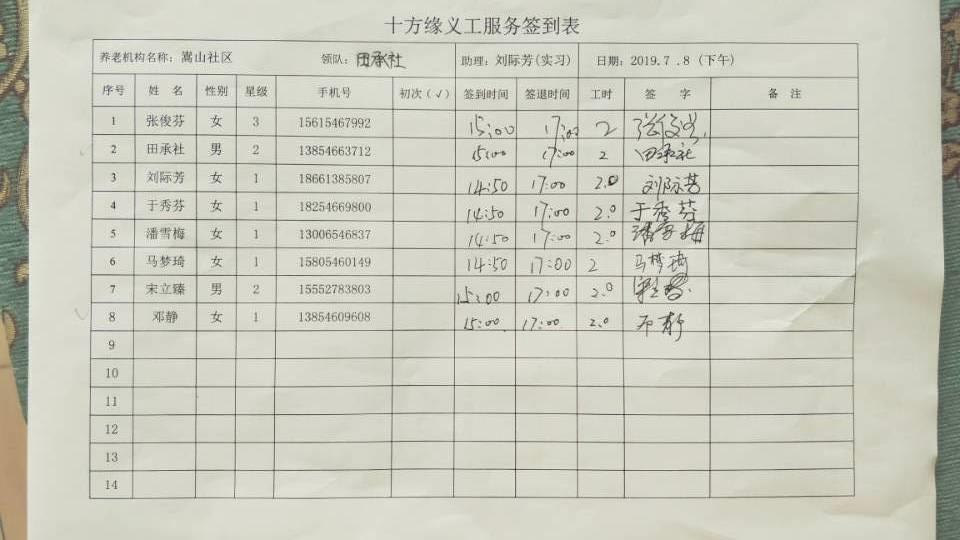 十方缘义工服务签到表
养老机构名称：嵩山社区 领队：田承社 助理：刘际芳(实习) 日期：2019.7.8（下午）
序号 姓 名 性别 星级 手机号 初次（√） 签到时间 签退时间 工时 签 字 备 注
1 张俊芬 女 3 15615467992 15:00 17:00 2 张俊芬
2 田承社 男 2 13854663712 15:00 17:00 2 田承社
3 刘际芳 女 1 18661385807 14:50 17:00 2.0 刘际芳
4 于秀芬 女 1 18254669800 14:50 17:00 2.0 于秀芬
5 潘雪梅 女 1 13006546837 14:50 17:00 2.0 潘雪梅
6 马梦琦 女 1 15805460149 14:50 17:00 2 马梦琦
7 宋立臻 男 2 15552783803 15:00 17:00 2.0
8 邓静 女 1 13854609608 15:00 17:00 2.0 邓静
9
10
11
12
13
14